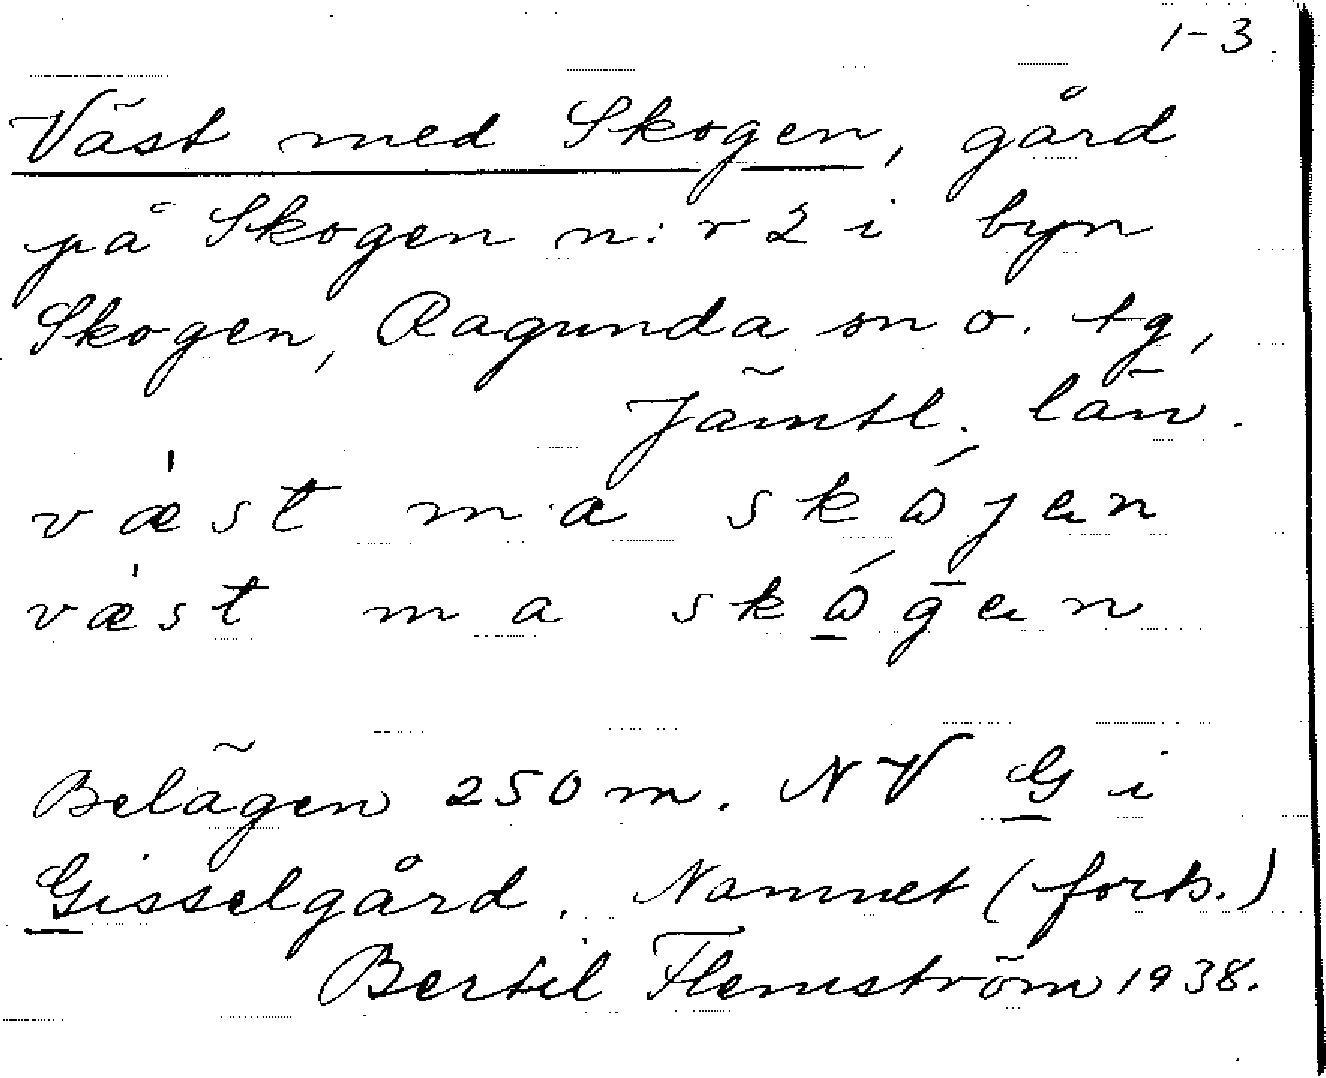 1-3.
Väst med Skogen, gård
på Skogen n:r 2 i byn
Skogen, Ragunda sn o. tg,
Jämtl. län.
væst ma skɷjen
væst ma skɷgen
Belägen 250 m. NV G i
Gisselgård. Namnet (forts.)
Bertil Flemström 1938.